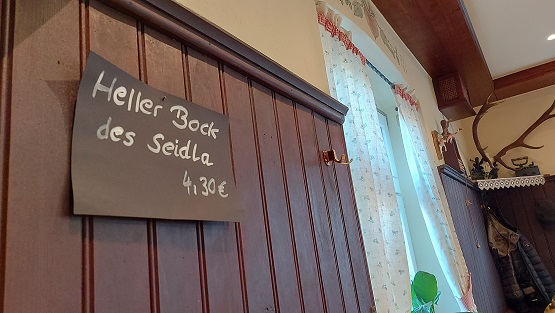 Heller Bock
des Seidla
4,30€